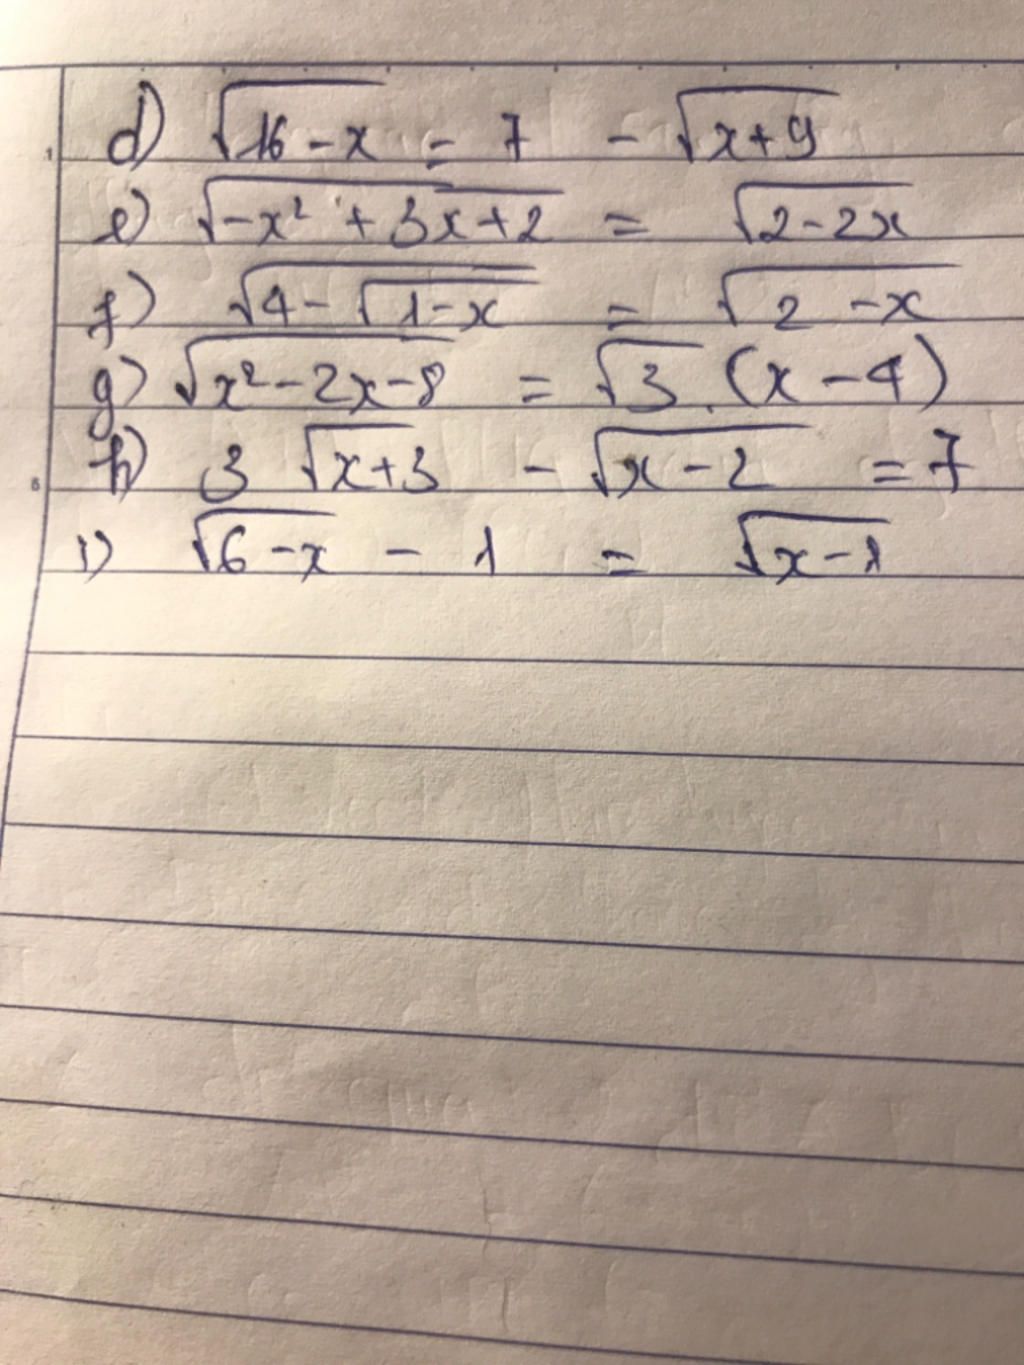 d) √(16-x) = 7 - √(x+9)
e) √(-x² + 3x+2) = √(2-2x)
f) √(4-√(1-x)) = √(2-x)
g) √(x²-2x-8) = √3.(x-4)
h) 3 √(x+3) - √(x-2) = 7
i) √(6-x) - 1 = √(x-1)